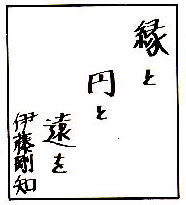 縁と
円と
遠を
伊藤剛知